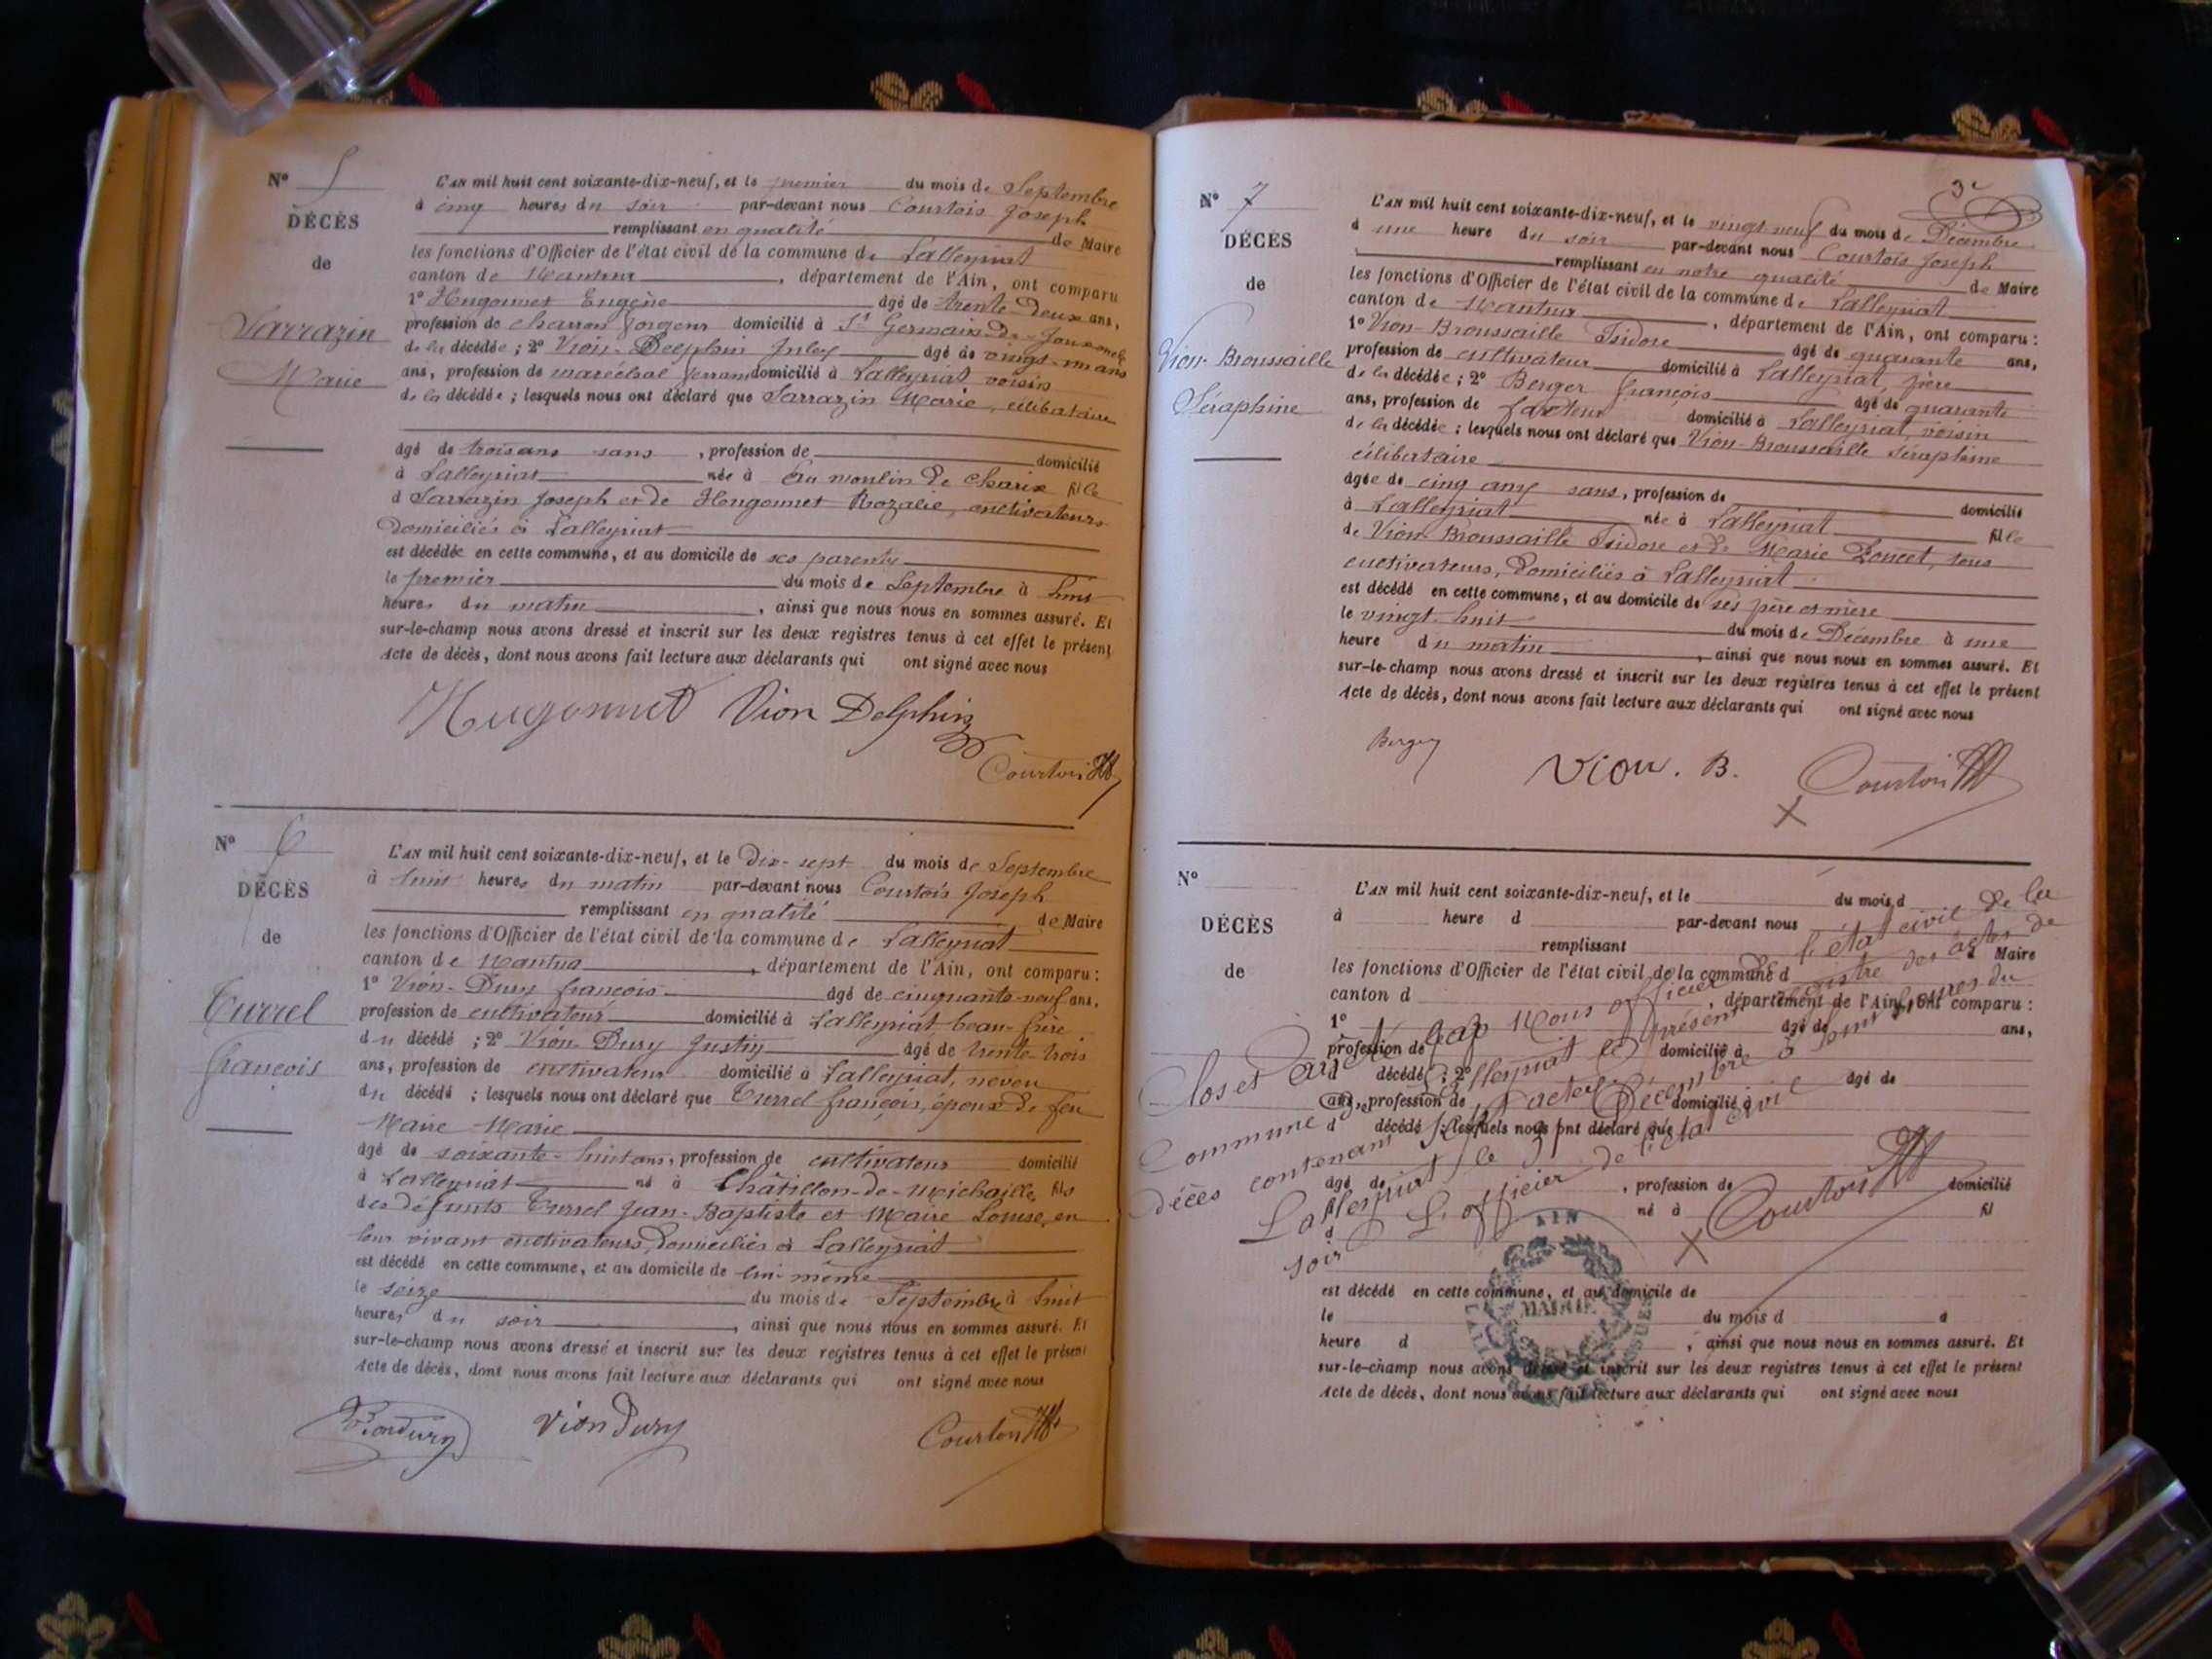 N° 5
DÉCÈS
de
Sarrazin
Marie
L'AN mil huit cent soixante-dix-neuf, et le premier du mois de Septembre
à cinq heures du soir par-devant nous Courtois Joseph
remplissant en qualité de Maire
les fonctions d'Officier de l'état civil de la commune de Lalleyriat
canton de Nantua, département de l'Ain, ont comparu
1° Hugonnet Eugène âgé de trente-deux ans,
profession de charron forgeur domicilié à St Germain-de-Joux oncle
de la décédée ; 2° Vion-Delphin Juley âgé de vingt-un ans
ans, profession de maréchal ferran domicilié à Lalleyriat voisin
de la décédée ; lesquels nous ont déclaré que Sarrazin Marie, célibataire
âgé de trois ans sans, profession de domicilié
à Lalleyriat née à au moulin de Charix fille
d Sarrazin Joseph et de Hugonnet Rozalie, cultivateurs
domiciliés à Lalleyriat
est décédée en cette commune, et au domicile de ses parents
le premier du mois de Septembre à huit
heures du matin, ainsi que nous nous en sommes assuré. Et
sur-le-champ nous avons dressé et inscrit sur les deux registres tenus à cet effet le présent
Acte de décès, dont nous avons fait lecture aux déclarants qui ont signé avec nous
Hugonnet Vion Delphin
Courtois
N° 6
DÉCÈS
de
Turrel
françois
L'AN mil huit cent soixante-dix-neuf, et le Dix-sept du mois de Septembre
à huit heures du matin par-devant nous Courtois Joseph
remplissant en qualité de Maire
les fonctions d'Officier de l'état civil de la commune de Lalleyriat
canton de Nantua, département de l'Ain, ont comparu :
1° Vion-Dury françois âgé de cinquante-neuf ans,
profession de cultivateur domicilié à Lalleyriat beau-frère
du décédé ; 2° Vion-Dury Justin âgé de trente-trois
ans, profession de cultivateur domicilié à Lalleyriat, neveu
du décédé ; lesquels nous ont déclaré que Turrel françois, époux de feu
Maire Marie
âgé de soixante-huit ans, profession de cultivateur domicilié
à Lalleyriat né à Châtillon-de-Michaille, fils
des défunts Turrel Jean-Baptiste et Maire Louise, en
leur vivant cultivateurs, domiciliés à Lalleyriat
est décédé en cette commune, et au domicile de lui-même
le seize du mois de Septembre à huit
heures du soir, ainsi que nous nous en sommes assuré. Et
sur-le-champ nous avons dressé et inscrit sur les deux registres tenus à cet effet le présent
Acte de décès, dont nous avons fait lecture aux déclarants qui ont signé avec nous
Viondury Vion Dury Courtois
3e
N° 7
DÉCÈS
de
Vion-Broussaille
Séraphine
L'AN mil huit cent soixante-dix-neuf, et le vingt-neuf du mois de Décembre
à une heure du soir par-devant nous Courtois Joseph
remplissant en notre qualité de Maire
les fonctions d'Officier de l'état civil de la commune de Lalleyriat
canton de Nantua, département de l'Ain, ont comparu :
1° Vion-Broussaille Isidore âgé de quarante ans,
profession de cultivateur domicilié à Lalleyriat, père
de la décédée ; 2° Berger françois âgé de quarante
ans, profession de facteur domicilié à Lalleyriat, voisin
de la décédée ; lesquels nous ont déclaré que Vion-Broussaille Séraphine
célibataire
âgée de cinq ans sans, profession de domicilié
à Lalleyriat née à Lalleyriat fille
de Vion-Broussaille Isidore et de Marie Poncet, tous
cultivateurs, domiciliés à Lalleyriat
est décédé en cette commune, et au domicile de ses père et mère
le vingt-huit du mois de Décembre à une
heure du matin, ainsi que nous nous en sommes assuré. Et
sur-le-champ nous avons dressé et inscrit sur les deux registres tenus à cet effet le présent
Acte de décès, dont nous avons fait lecture aux déclarants qui ont signé avec nous
Berger Vion. B. Courtois
N°
DÉCÈS
de
L'AN mil huit cent soixante-dix-neuf, et le du mois d
à heure d par-devant nous
remplissant d Maire
les fonctions d'Officier de l'état civil de la commune d
canton d, département de l'Ain, ont comparu :
1° âgé de ans,
profession de domicilié à
d décédé ; 2° âgé de
ans, profession de domicilié à
d décédé ; lesquels nous ont déclaré que
âgé de, profession de domicilié
né à fil
d
Clos et arrêté par Nous officier de l'état civil de la
Commune de Lalleyriat le présent registre des actes de
décès contenant sept actes
Lalleyriat le 31 Décembre à huit heures du
soir L'officier de l'état civil
Courtois
AIN
MAIRIE
est décédé en cette commune, et au domicile de
le du mois d à
heure d, ainsi que nous nous en sommes assuré. Et
sur-le-champ nous avons dressé et inscrit sur les deux registres tenus à cet effet le présent
Acte de décès, dont nous avons fait lecture aux déclarants qui ont signé avec nous